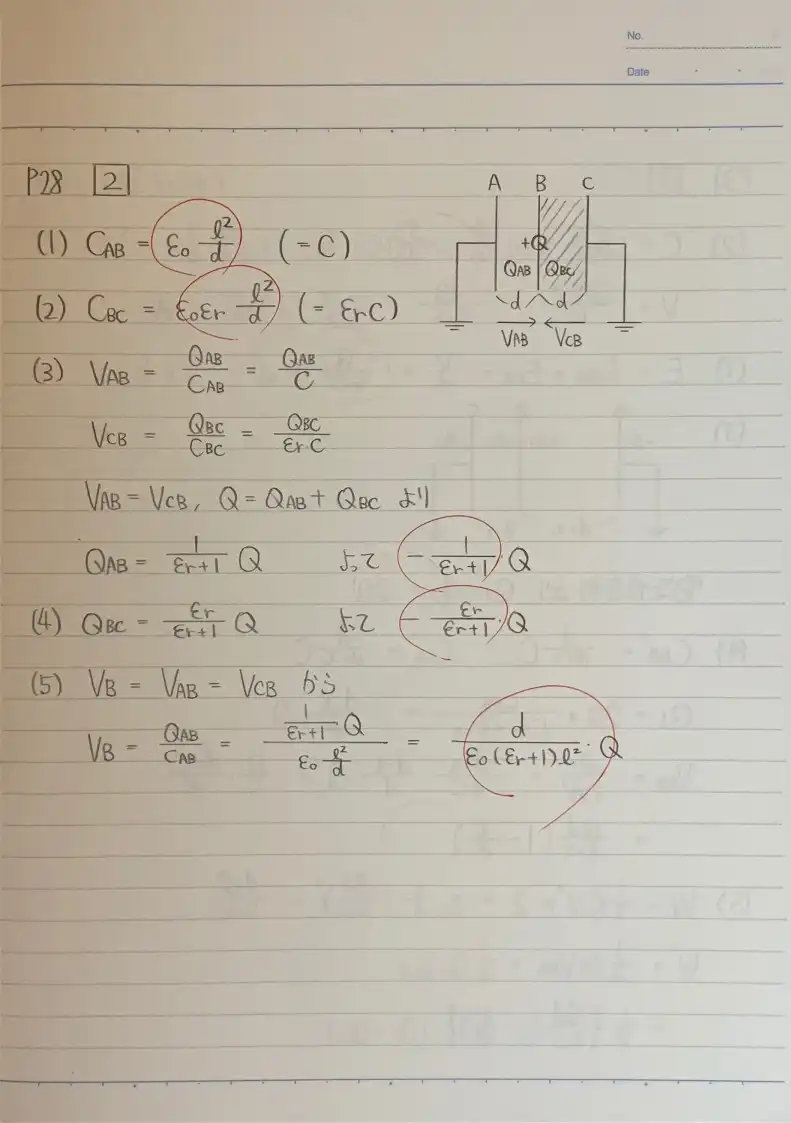 No.
Date
P28 2
A B C
(1) CAB = ε0 l²/d (= C)
+Q
QAB QBC
d d
(2) CBC = ε0εr l²/d (= εrC)
VAB VCB
(3) VAB = QAB/CAB = QAB/C
VCB = QBC/CBC = QBC/εr·C
VAB = VCB, Q = QAB + QBC より
QAB = 1/εr+1 Q よって − 1/εr+1·Q
(4) QBC = εr/εr+1 Q よって − εr/εr+1·Q
(5) VB = VAB = VCB から
VB = QAB/CAB = 1/εr+1 Q/ε0 l²/d = d/ε0(εr+1)l²·Q